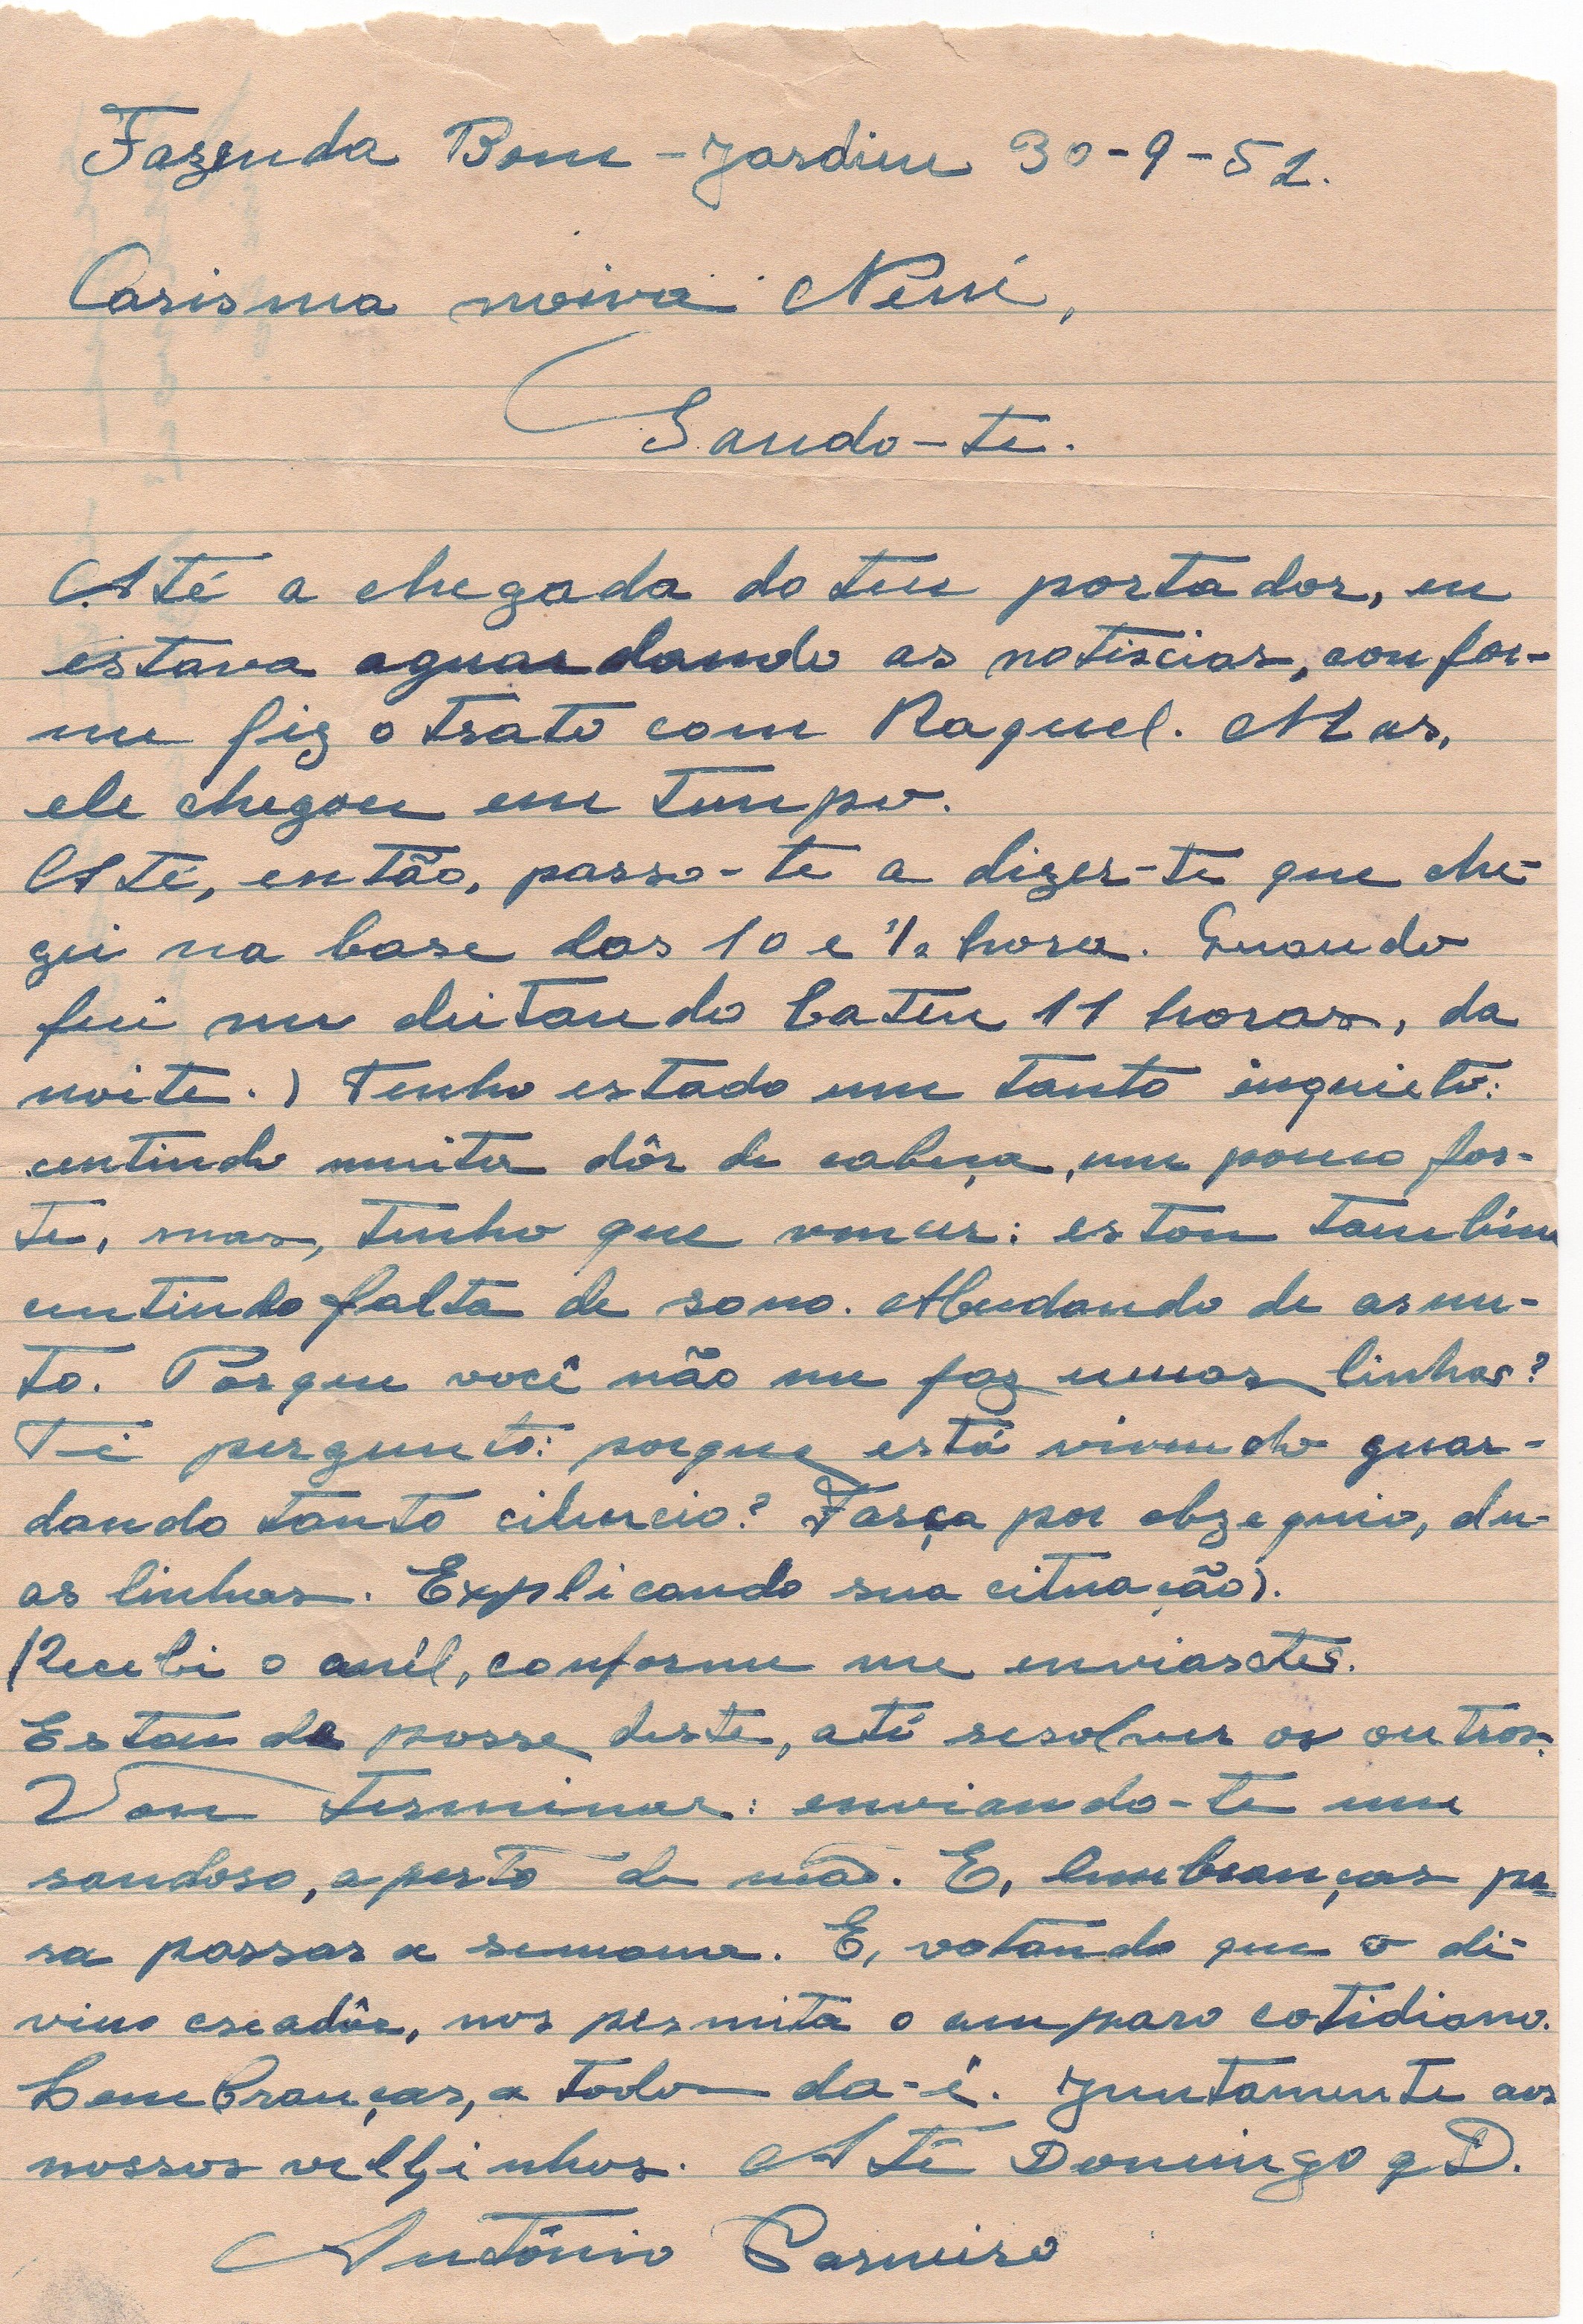 Fazenda Bom-Jardim 30-9-52.
Carisma noiva Nené,
Saudo-te.
Até a chegada do teu portador, eu
estava aguardando as notiscias, confor-
me fiz o trato com Raquel. Mas,
ele chegou em tempo.
Até, então, passo-te a dizer-te que che-
gui na base das 10 e 1/2 hora. Quando
fui me deitando bateu 11 horas, da
noite.) Tenho estado um tanto inquieto:
centindo muita dôr de cabeça, um pouco for-
te, mas, tenho que vencer: estou também
centindo falta de sono. Mudando de asun-
to. Porque você não me faz umas linhas?
Te pergunto: porque está vivendo guar-
dando tanto cilencio? Farça por obzequio, du-
as linhas. Explicando sua cituação).
Recebi o anél, conforme me enviasctes.
Estou de posse deste, até resolver os outros.
Vou terminar: enviando-te um
saudoso, aperto de mão. E, lembranças pa-
ra passar a semana. E, votando que o di-
vino creadôr, nos permita o amparo cotidiano.
Lembranças, a todos da-í. Juntamente aos
nossos velhinhos. Até Domingo q D.
Antônio Carneiro